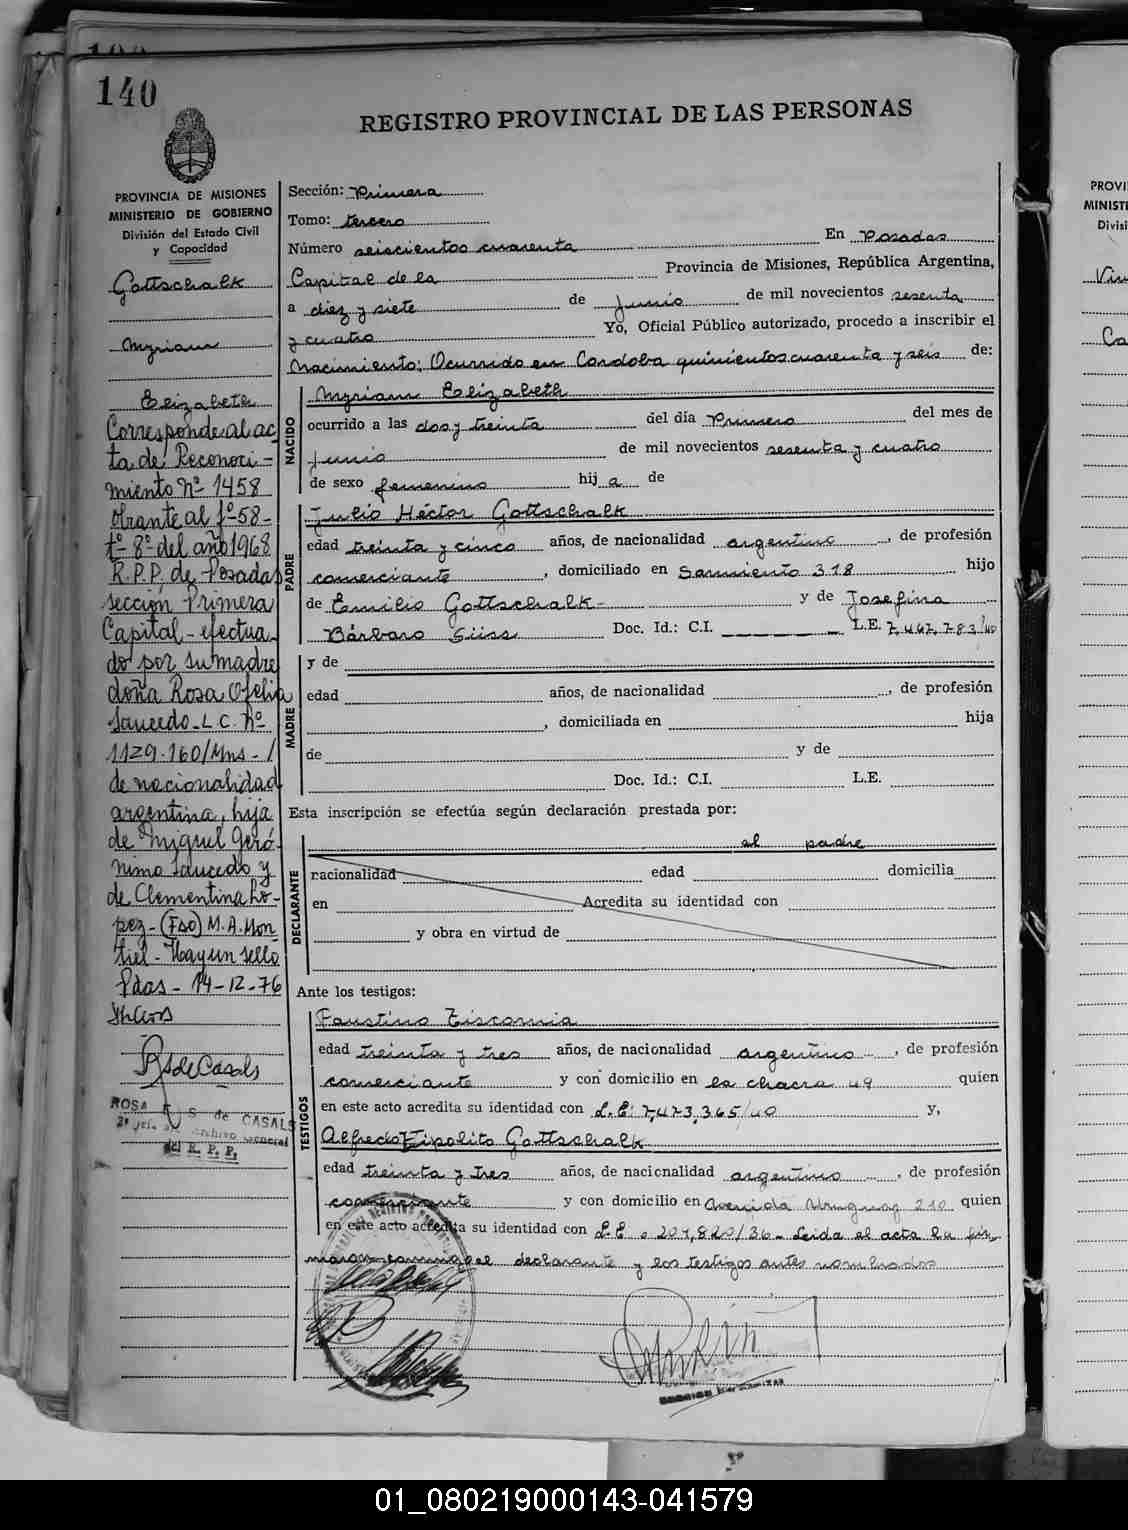 140
REGISTRO PROVINCIAL DE LAS PERSONAS
PROVINCIA DE MISIONES
MINISTERIO DE GOBIERNO
División del Estado Civil
y Capacidad
Gottschalk
Myriam
Elizabeth
Corresponde al ac-
ta de Reconoci-
miento Nº 1458
obrante al fº 58-
tº 8º del año 1968
R.P.P. de Posadas
sección Primera
Capital - efectua-
do por su madre
doña Rosa Ofelia
Saucedo - L.C. Nº
1129.160/Mns - /
de nacionalidad
argentina, hija
de Miguel Geró-
nimo Saucedo y
de Clementina Lo-
pez - (Fdo) M.A. Mon-
tiel - Hay un sello
Pdas - 14-12-76
RS de Casals
ROSA S de CASALS
Archivo General
del R. P. P.
Sección: Primera
Tomo: tercero
Número seiscientos cuarenta En Posadas
Capital de la Provincia de Misiones, República Argentina,
a diez y siete de Junio de mil novecientos sesenta
y cuatro Yo, Oficial Público autorizado, procedo a inscribir el
Nacimiento: Ocurrido en Cordoba quinientos cuarenta y seis de:
NACIDO
Myriam Elizabeth
ocurrido a las dos y treinta del día Primero del mes de
Junio de mil novecientos sesenta y cuatro
de sexo femenino hij a de
PADRE
Julio Héctor Gottschalk
edad treinta y cinco años, de nacionalidad argentino, de profesión
comerciante, domiciliado en Sarmiento 318 hijo
de Emilio Gottschalk- y de Josefina
Bárbara Süss Doc. Id.: C.I. L.E. 7.467.783/40
MADRE
y de
edad años, de nacionalidad, de profesión
, domiciliada en hija
de y de
Doc. Id.: C.I. L.E.
Esta inscripción se efectúa según declaración prestada por:
DECLARANTE
el padre
nacionalidad edad domicilia
en Acredita su identidad con
y obra en virtud de
Ante los testigos:
TESTIGOS
Faustino Tiscornia
edad treinta y tres años, de nacionalidad argentino, de profesión
comerciante y con domicilio en la chacra 49 quien
en este acto acredita su identidad con L.E: 7,473,365/40 y,
Alfredo Hipolito Gottschalk
edad treinta y tres años, de nacionalidad argentino, de profesión
comerciante y con domicilio en Avenida Uruguay 210 quien
en este acto acredita su identidad con L.E. 0 207,820/36- Leida el acta la fir-
maron conmigo el declarante y los testigos antes nombrados
PROVI
MINISTE
Divisi
01_080219000143-041579